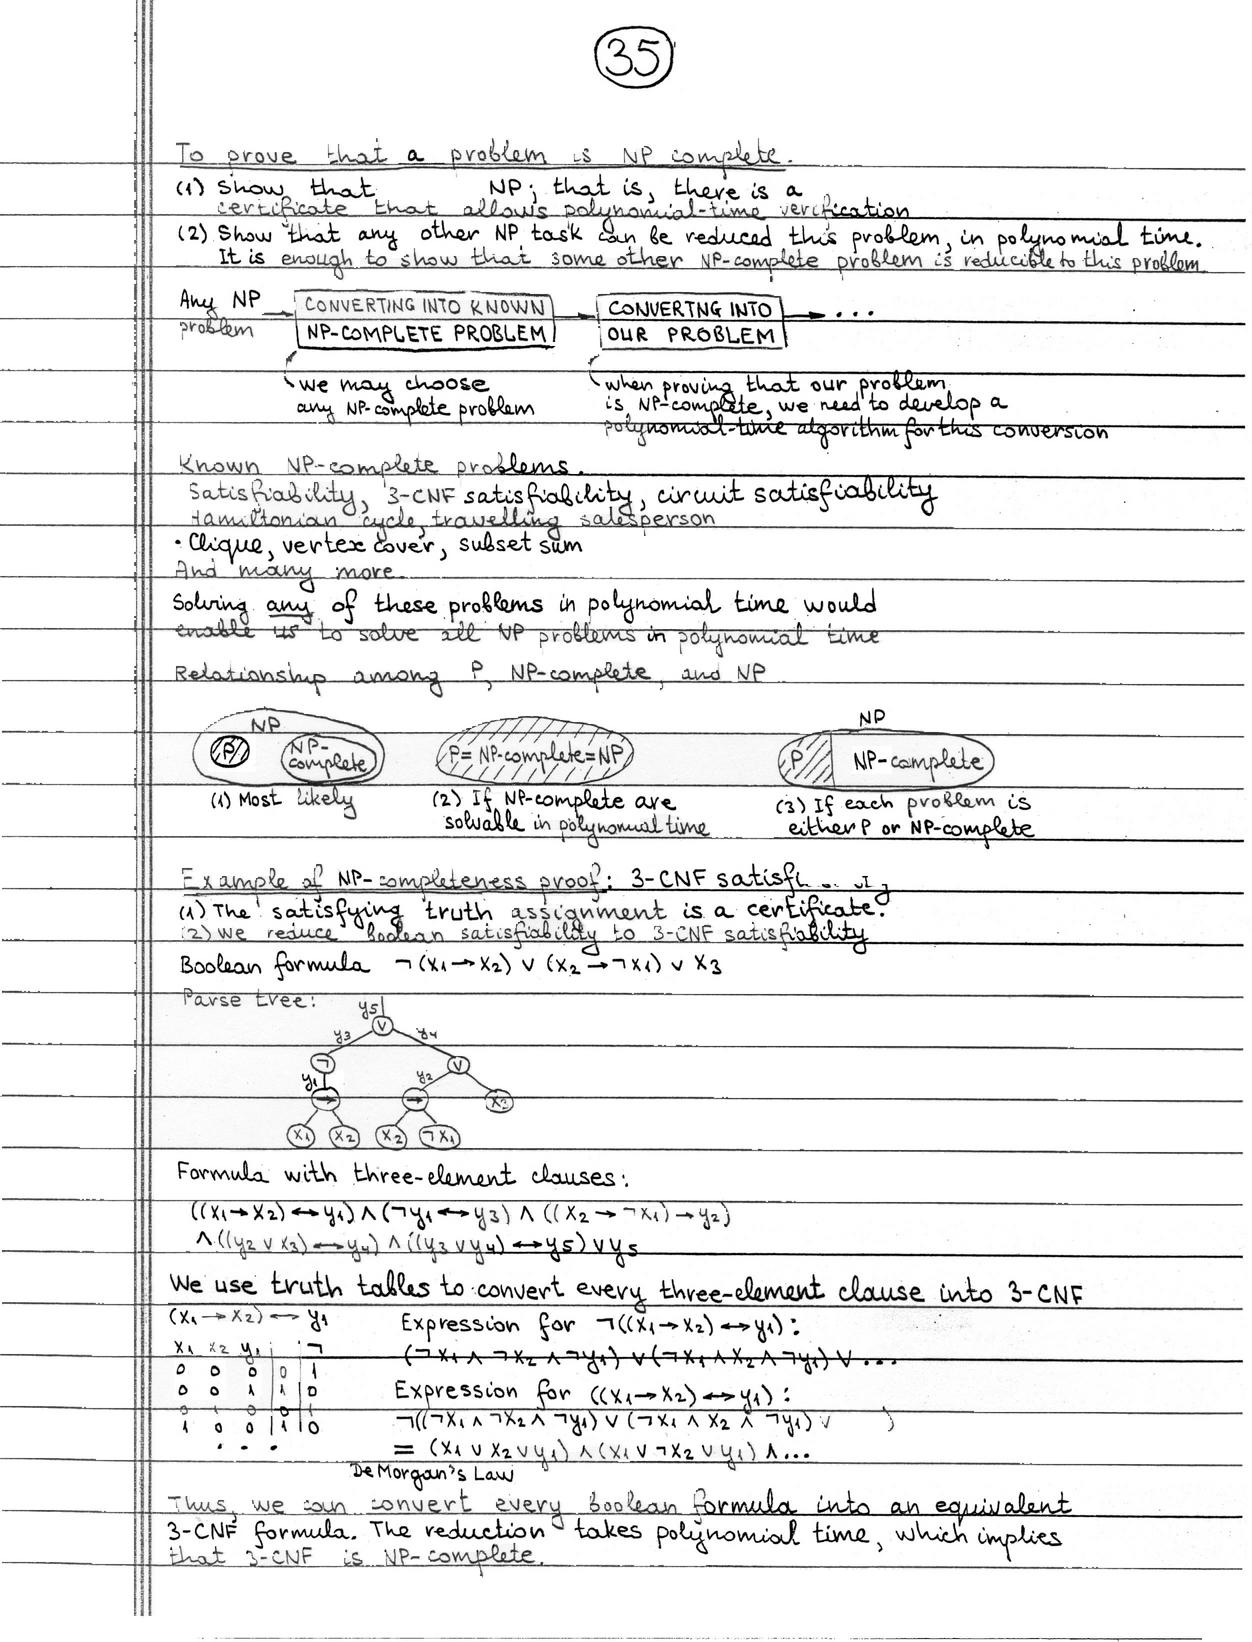 35
To prove that a problem is NP complete.
(1) Show that NP; that is, there is a
certificate that allows polynomial-time verification
(2) Show that any other NP task can be reduced this problem, in polynomial time.
It is enough to show that some other NP-complete problem is reducible to this problem
Any NP
problem
CONVERTING INTO KNOWN
NP-COMPLETE PROBLEM
CONVERTNG INTO
OUR PROBLEM
...
we may choose
any NP-complete problem
when proving that our problem
is NP-complete, we need to develop a
polynomial-time algorithm for this conversion
Known NP-complete problems.
Satisfiability, 3-CNF satisfiability, circuit satisfiability
Hamiltonian cycle, travelling salesperson
· Clique, vertex cover, subset sum
And many more.
Solving any of these problems in polynomial time would
enable us to solve all NP problems in polynomial time
Relationship among P, NP-complete, and NP
NP
P
NP-
complete
P = NP-complete = NP
NP
P
NP-complete
(1) Most likely
(2) If NP-complete are
solvable in polynomial time
(3) If each problem is
either P or NP-complete
Example of NP-completeness proof: 3-CNF
(1) The satisfying truth assignment is a certificate.
(2) We reduce boolean satisfiability to 3-CNF satisfiability
Boolean formula ¬(x1→x2) ∨ (x2→¬x1) ∨ x3
Parse tree:
y5
∨
y3 y4
¬ ∨
y1 y2
→ → x3
x1 x2 x2 ¬x1
Formula with three-element clauses:
((x1→x2)↔y1) ∧ (¬y1↔y3) ∧ ((x2→¬x1)→y2)
∧((y2∨x3)↔y4) ∧ ((y3∨y4)↔y5) ∨ y5
We use truth tables to convert every three-element clause into 3-CNF
(x1→x2)↔y1
x1 x2 y1 ¬
0 0 0 0 1
0 0 1 1 0
0 1 0 0 1
1 0 0 1 0
...
Expression for ¬((x1→x2)↔y1):
(¬x1∧¬x2∧¬y1) ∨ (¬x1∧x2∧¬y1) ∨ ...
Expression for ((x1→x2)↔y1):
¬((¬x1∧¬x2∧¬y1) ∨ (¬x1∧x2∧¬y1) ∨ )
= (x1∨x2∨y1) ∧ (x1∨¬x2∨y1) ∧ ...
De Morgan's Law
Thus, we can convert every boolean formula into an equivalent
3-CNF formula. The reduction takes polynomial time, which implies
that 3-CNF is NP-complete.